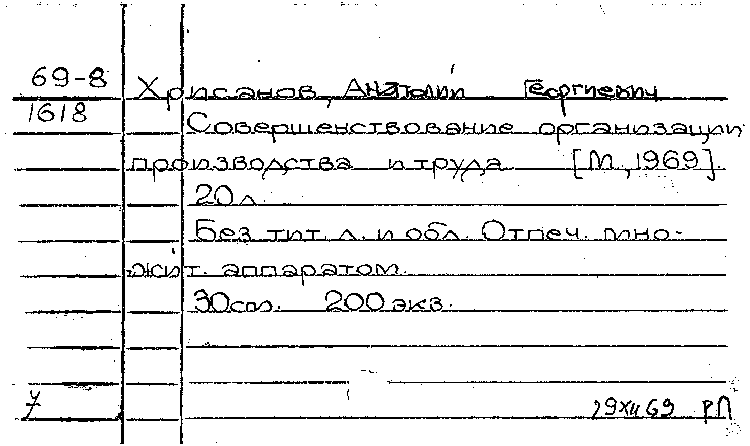 69-8 Хрисанов, Анатолий Георгиевич
1618 Совершенствование организации
производства и труда [М., 1969].
20 л.
Без тит. л. и обл. Отпеч. мно-
жит. аппаратом.
30 см. 200 экз.
7 29 XII 69 РП